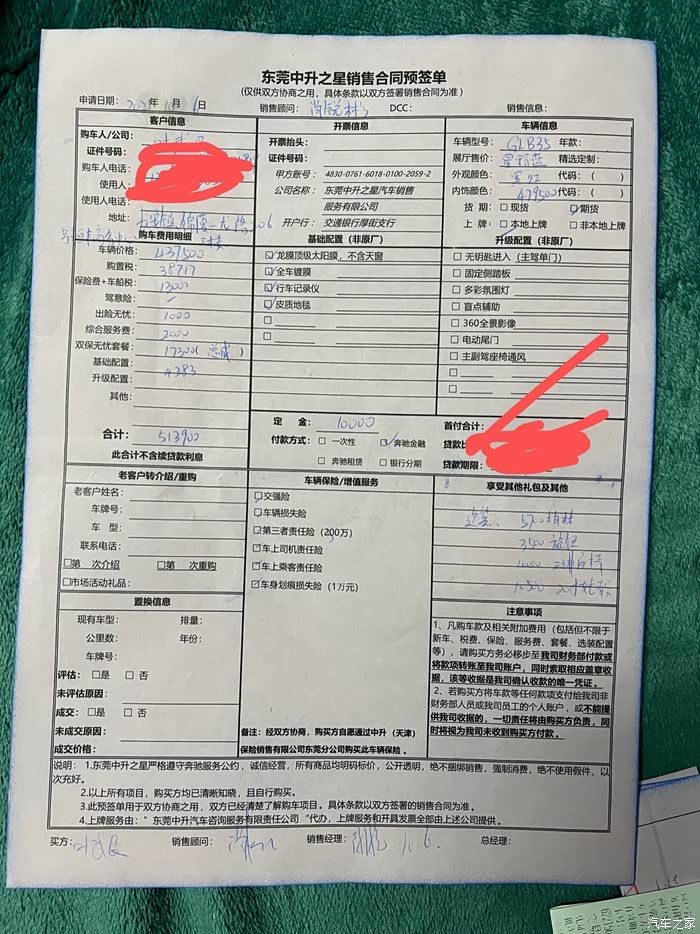 东莞中升之星销售合同预签单
(仅供双方协商之用，具体条款以双方签署销售合同为准)
申请日期： 年 月 6日 销售顾问： DCC： 销售信息：
客户信息 开票信息 车辆信息
购车人/公司：
证件号码：
购车人电话：
使用人：
使用人电话：
地址：
开票抬头：
证件号码：
甲方账号： 4830-0761-6018-0100-2059-2
公司名称： 东莞中升之星汽车销售
服务有限公司
开户行： 交通银行厚街支行
车辆型号： GLB35 年款：
展厅售价： 精选定制：
外观颜色： 代码：（ ）
内饰颜色： 479500 代码：（ ）
货 期： □现货 ☑期货
上 牌： ☑本地上牌 □非本地上牌
购车费用明细
车辆价格： 437500
购置税： 38717
保险费+车船税： 13000
驾意险：
出险无忧： 1000
综合服务费： 2000
双保无忧套餐： 17300
基础配置： 4383
升级配置：
其他：
合计： 513900
此合计不含续贷款利息
基础配置（非原厂）
☑龙膜顶级太阳膜，不含天窗
☑全车镀膜
☑行车记录仪
☑皮质地毯
□
□
升级配置（非原厂）
□ 无钥匙进入（主驾单门）
□ 固定侧踏板
□ 多彩氛围灯
□ 盲点辅助
□ 360全景影像
□ 电动尾门
□ 主副驾座椅通风
□
□
定 金： 10000
付款方式： □ 一次性 ☑ 奔驰金融
□ 奔驰租赁 □ 银行分期
首付合计：
贷款比
贷款期限：
老客户转介绍/重购
老客户姓名：
车牌号：
车 型：
联系电话：
□第 次介绍 □第 次重购
□市场活动礼品：
车辆保险/增值服务
☑交强险
☑车辆损失险
☑第三者责任险（200万）
☑车上司机责任险
☑车上乘客责任险
☑车身划痕损失险（1万元）
享受其他礼包及其他
置换信息
现有车型： 排量：
公里数： 年份：
车牌号：
评估： □是 □ 否
未评估原因：
成交： □是 □ 否
未成交原因：
成交价格：
备注：经双方协商，购买方自愿通过中升（天津）
保险销售有限公司东莞分公司购买此车辆保险 。
注意事项
1、凡购车款及相关附加费用（包括但不限于
新车、税费、保险、服务费、套餐、选装配置
等），请购买方务必移步至我司财务部付款或
将款项转账至我司账户，同时索取相应盖章收
据，该等收据是我司确认收款的唯一凭证。
2、若购买方将车款等任何款项支付给我司非
财务部人员或我司员工的个人账户，或不能提
供我司收据的，一切责任将由购买方负责，同
时将视为我司未收到购买方付款。
说明： 1.东莞中升之星严格遵守奔驰服务公约，诚信经营，所有商品均明码标价，公开透明，绝不捆绑销售，强制消费，绝不使用假件，以
次充好。
2.以上所有项目，购买方均已清晰知晓，且自行购买。
3.此预签单用于双方协商之用，双方已经清楚了解购车项目。具体条款以双方签署的销售合同为准。
4.上牌服务由：“东莞中升汽车咨询服务有限责任公司 ”代办，上牌服务和开具发票全部由上述公司提供。
买方： 销售顾问： 销售经理： 10.6. 总经理：
汽车之家